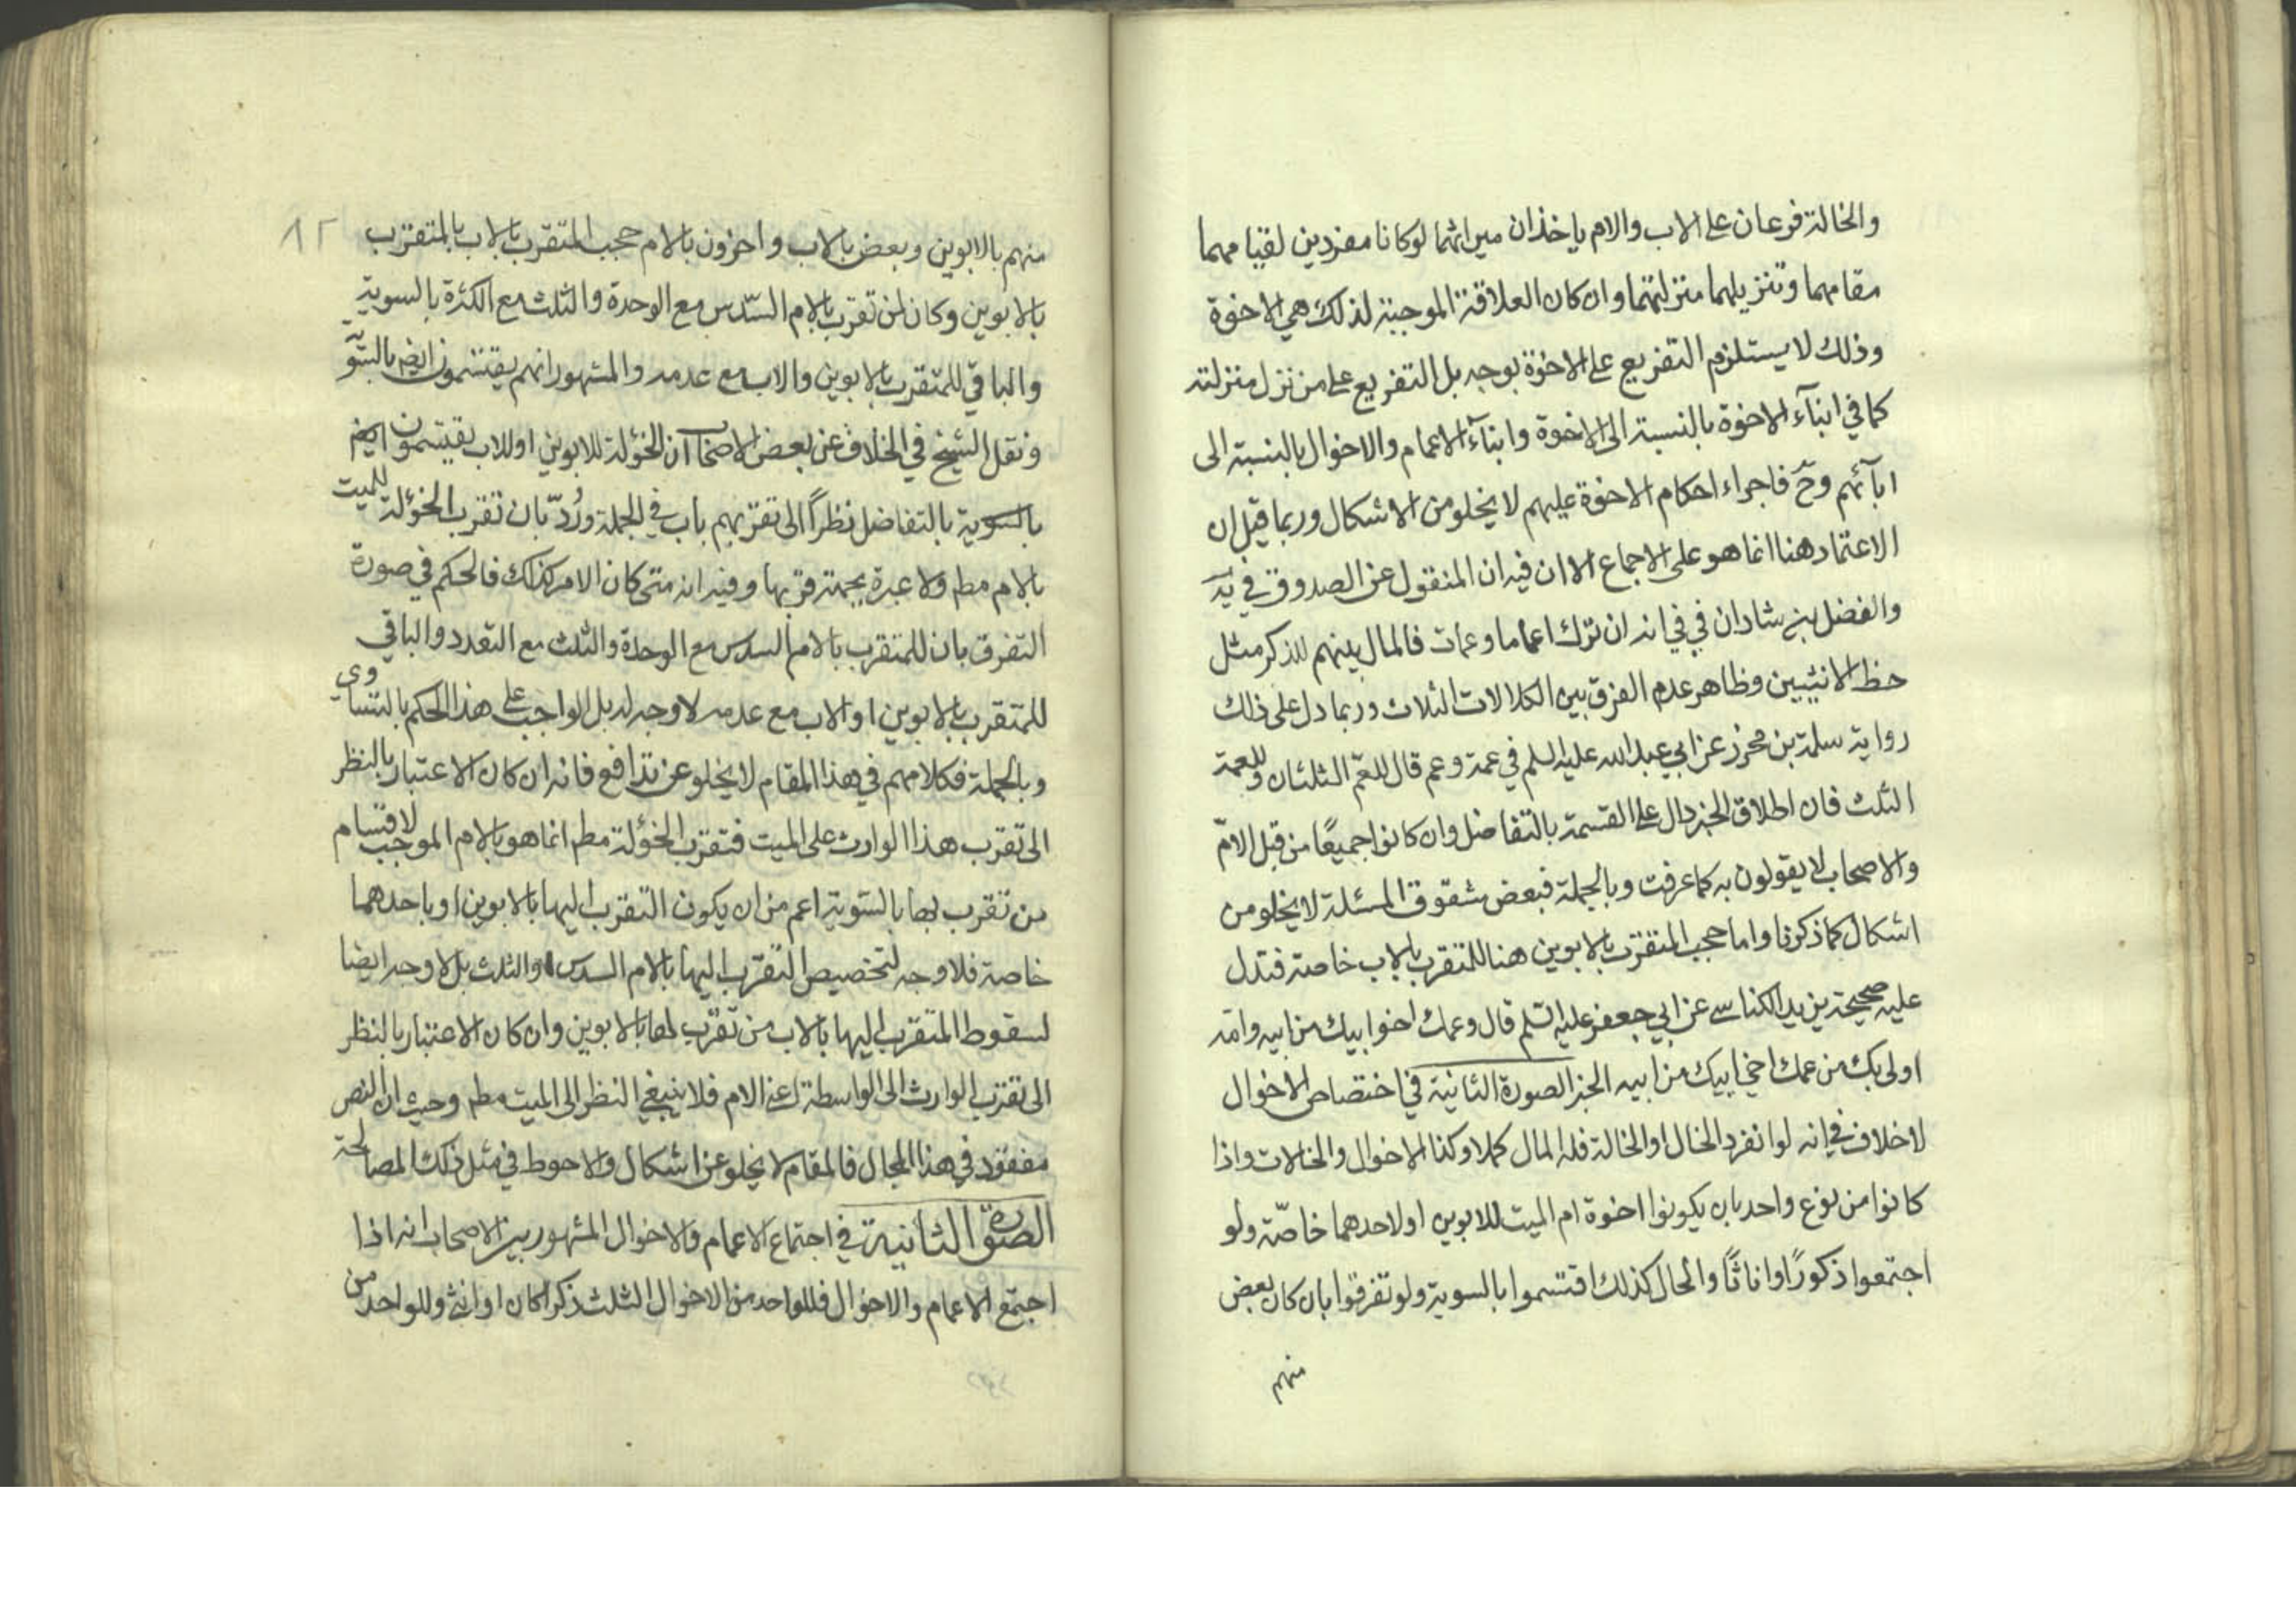 والخالة فرعان على الاب والام ياخذان ميراثهما لوكانا مفردين لقيامهما
مقامهما وتنزيلهما منزلتهما وان كان العلاقة الموجبة لذلك هي الاخوة
وذلك لا يستلزم التفريع على الاخوة بوجه بل التفريع على من نزل منزلته
كما في ابنآء الاخوة بالنسبة الى الاخوة وابنآء الاعمام والاخوال بالنسبة الى
ابآئهم وح فاجراء احكام الاخوة عليهم لا يخلو من الاشكال وربما قيل ان
الاعتماد هنا انما هو على الاجماع الا ان فيه ان المنقول عن الصدوق في يه
والفضل بن شاذان في في انه ان ترك اعماما وعمات فالمال بينهم للذكر مثل
حظ الانثيين وظاهر عدم الفرق بين الكلالات الثلاث وربما دل على ذلك
رواية سلمة بن محرز عن ابي عبد الله عليه السلم في عمة وعم قال للعم الثلثان وللعمة
الثلث فان اطلاق الخبر دال على القسمة بالتفاضل وان كانوا جميعًا من قبل الامّ
والاصحاب لا يقولون به كما عرفت وبالجملة فبعض شقوق المسئلة لا يخلو من
اشكال كما ذكرنا واما حجب المتقرب بالابوين هنا للمتقرب بالاب خاصة فتدل
عليه صحيحة يزيد الكناسي عن ابي جعفر عليه السلم قال وعمك اخوا بيك من ابيه وامه
اولى بك من عمك اخي ابيك من ابيه الخبر الصورة الثانية في اختصاص الاخوال
لا خلاف في انه لو انفرد الخال او الخالة فله المال كملا وكذا الاخوال والخالات واذا
كانوا من نوع واحد بان يكونوا اخوة ام الميت للابوين او لاحدهما خاصّة ولو
اجتمعوا ذكورًا واناثًا والحال كذلك اقتسموا بالسوية ولو تفرقوا بان كان بعض
منهم
٨٢
منهم بالابوين وبعض بالاب واخرون بالام حجب المتقرب بالاب بالمتقرب
بالابوين وكان لمن تقرب بالام السّدس مع الوحدة والثلث مع الكثرة بالسوية
والباقي للمتقرب بالابوين والاب مع عدمه والمشهور انهم يقتسمون ايضم بالسّوية
ونقل الشيخ في الخلاف عن بعض الاصحاب ان الخؤلة للابوين او للاب يقتسمون ايضم
بالسوية بالتفاضل نظرًا الى تقربهم باب في الجملة ورُدّ بان تقرب الخؤلة للميت
بالام مطم ولا عبرة بجهة قربها وفيه انه متى كان الامر كذلك فالحكم في صورة
التفرق بان للمتقرب بالام السدس مع الوحدة والثلث مع التعدد والباقي
للمتقرب بالابوين او الاب مع عدمه لا وجه له بل الواجب على هذا الحكم بالتساوي
وبالجملة فكلامهم في هذا المقام لا يخلو عن تدافع فانه ان كان الاعتبار بالنظر
الى تقرب هذا الوارث على الميت فتقرب الخؤلة مطم انما هو بالام الموجب لاقتسام
من تقرب لها بالسّوية اعم من ان يكون التقرب اليها بالابوين او باحدهما
خاصة فلا وجه لتخصيص التقرب اليها بالام السدس والثلث بل لا وجه ايضا
لسقوط المتقرب اليها بالاب من تقرب لها بالابوين وان كان الاعتبار بالنظر
الى تقرب الوارث الى الواسطة اعني الام فلا ينبغي النظر الى الميت مطم وحيث ان النص
مفقود في هذا المجال فالمقام لا يخلو عن اشكال والاحوط في مثل ذلك المصالحة
الصورة الثانية في اجتماع الاعمام والاخوال المشهور بين الاصحاب انه اذا
اجتمع الاعمام والاخوال فللواحد من الاخوال الثلث ذكرا كان او انثى وللواحد من